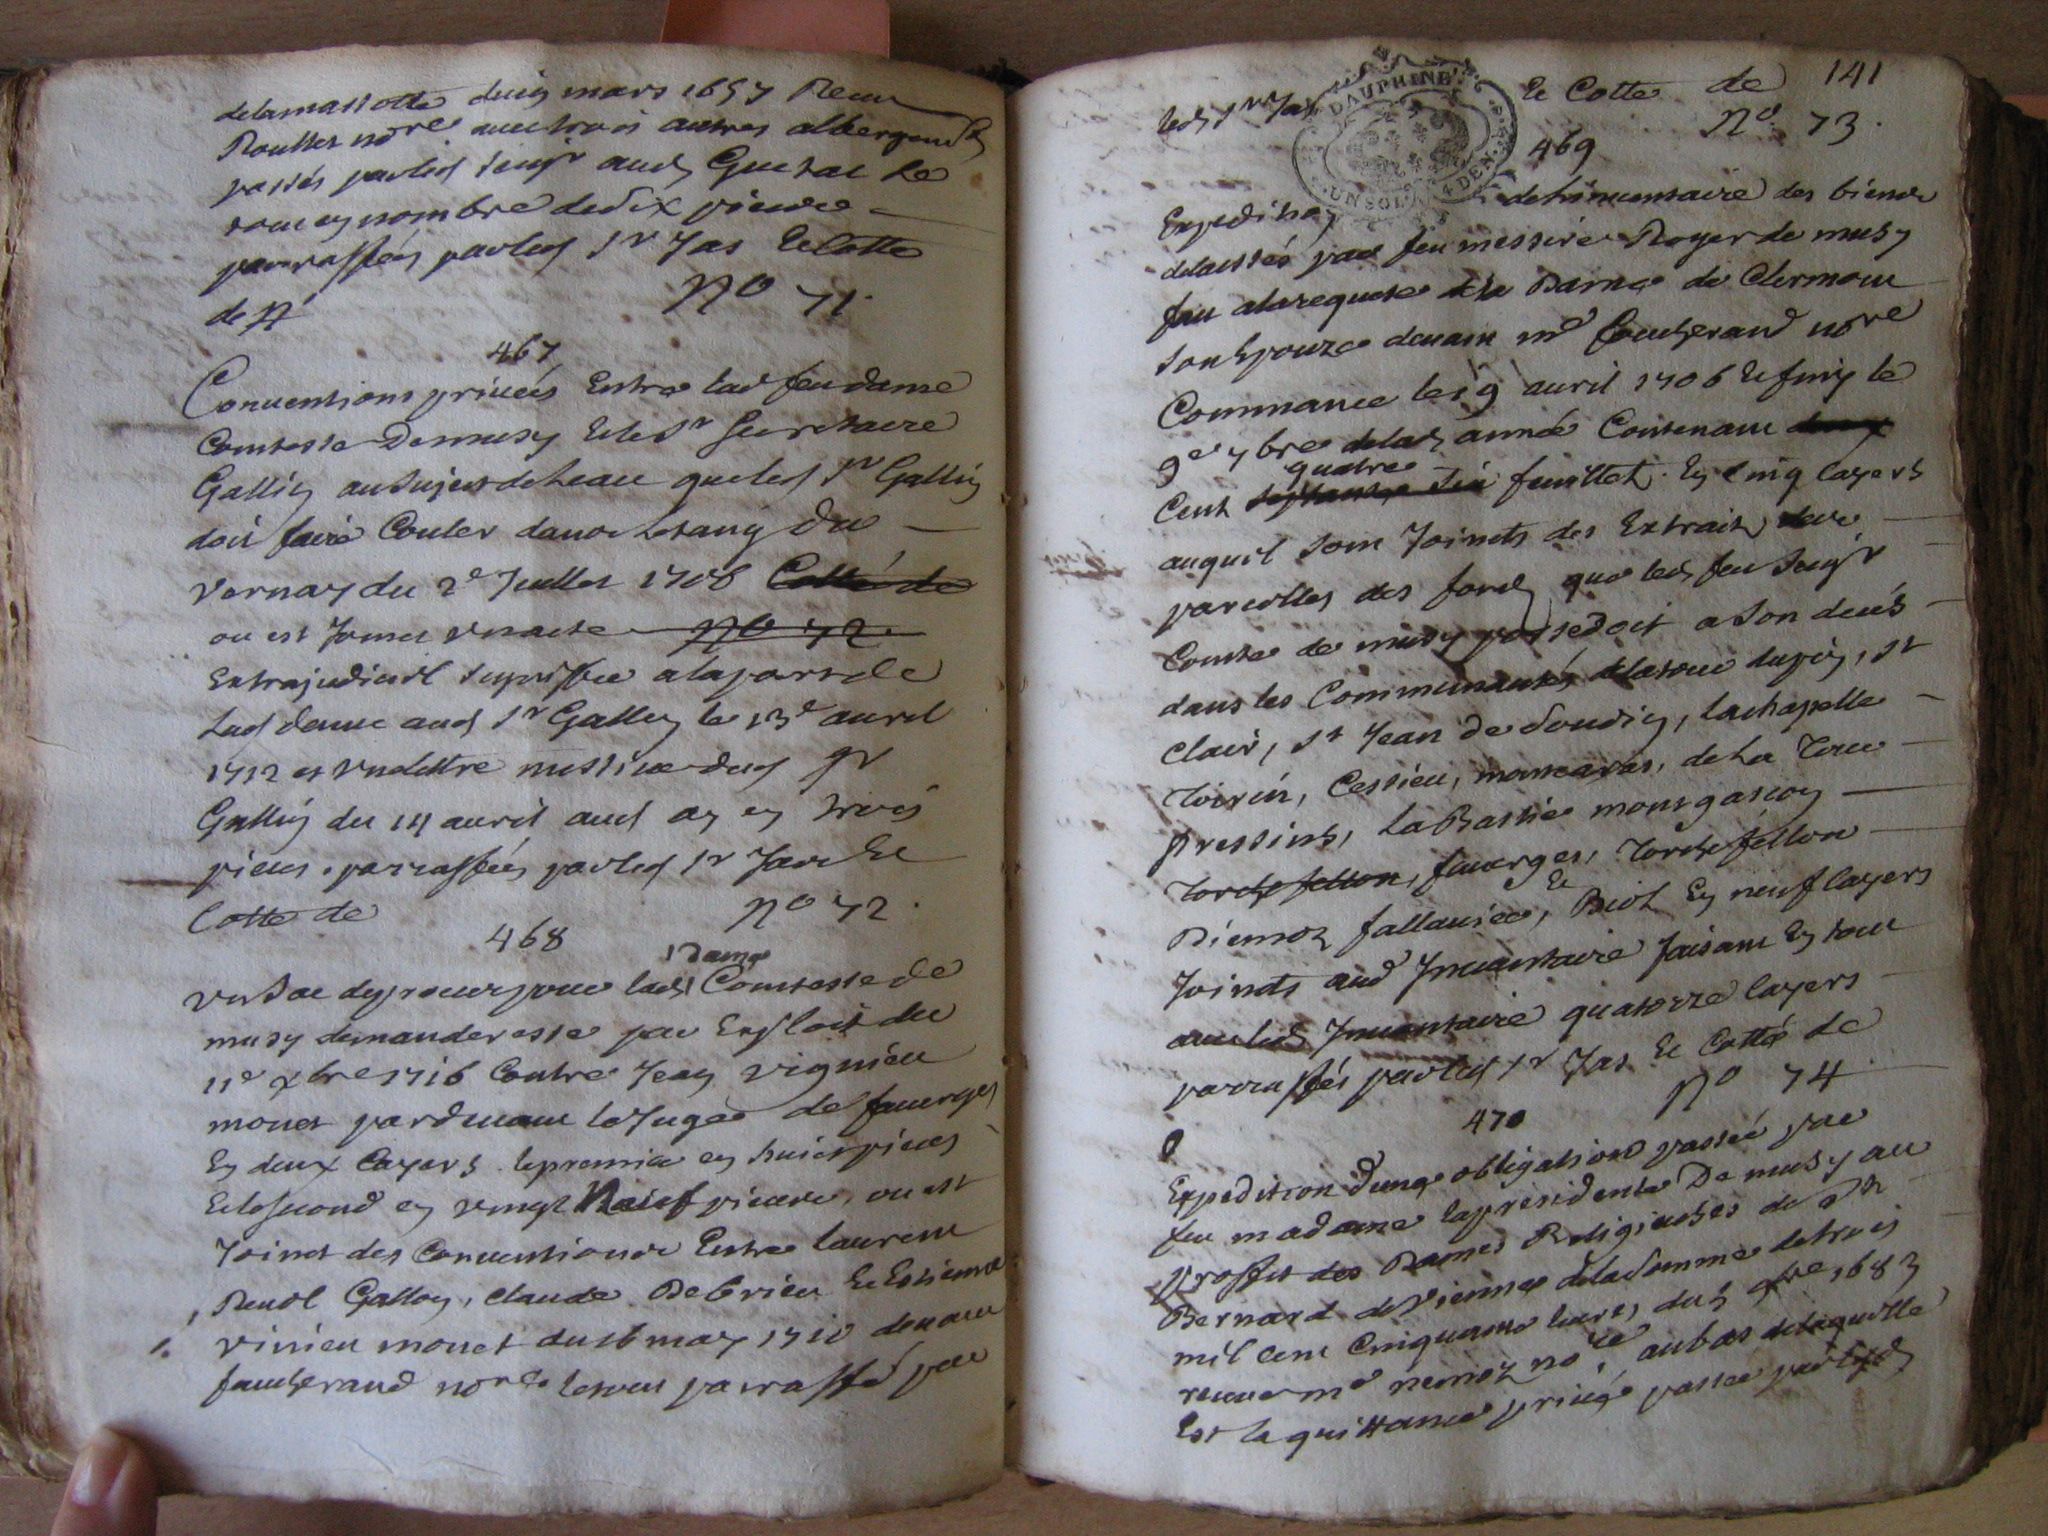 delamassotte du 19 mars 1657 Receu
Roullet nore avec trois autres albergemts
passés par led seigr aud Guetat le
tout en nombre de dix pieces
parraffées par led Sr Jas Et Cotte
de N No 71.
467
Conventions privées Entre lad feu dame
Comtesse Demusy Et le Sr Secretaire
Gallin au Sujet de Leau que led Sr Gallin
doit faire Couler dans Letang du
Vernay du 2e Juillet 1708 Cotté de
ou est Joinct un acte No 72.
Extrajudiciel signiffié a la part de
Lad dame aud Sr Gallin le 13e avril
1712 et une lettre missive dud Sr
Gallin du 14 avril aud an en trois
pieces parraffées par led Sr Jas Et
Cotte de No 72.
468
un Sac de proces pour lad Dame Comtesse de
musy demanderesse par Exploit du
11e xbre 1716 Contre Jean vignieu
monet pardevant le Juge de faverges
En deux Cayers le premier en huict pieces
Et le second en vingt Neuf pieces, ou est
Joinct des Conventions Entre laurent
Revol Gallon, claude Debrieu Et Estienne
vinieu monet du 16 may 1710 devant
faucherand nore Le tout parraffé par
led Sr Jas Et Cotte de 141
No 73.
DAUPHINE
UN SOL 4 DEN.
469
Expedition de Linventaire des biens
delaissés par feu messire Royer de musy
fait a la requete de la Dame de Clermont
son Epouze devant me faucherand nore
Commancé le 19 avril 1706 Et finy le
9e 7bre de lad année Contenant deux
quatre
Cent septante six feuillet En Cinq Cayers
auquel sont Joincts des Extraits des
parcelles des fonds que led feu Seigr
Comte de musy possedoit a son decés
dans les Communautés de la tour du pin, St
Clair, St Jean de Soudin, La chapelle
Toirin, Cessieu, montcarat, de La Tour
pressins, La Bastie montgascon
Torchefellon, faverges, Torchefellon
Et
Diemoz fallavier, Biol En neuf Cayers
Joincts aud Inventaire faisant En tout
avec led Inventaire quatorze Cayers
parraffés par led Sr Jas Et Cotté de
No 74
470
Expedition dune obligation passée par
feu madame la presidente De musy au
proffit des Dames Religieuses de St
Bernard de Vienne de la Somme de trois
mil cent Cinquante livres, du 5 9bre 1683
receue me nemoz nore, au bas de laquelle
Est la quittance privée passée par lesd